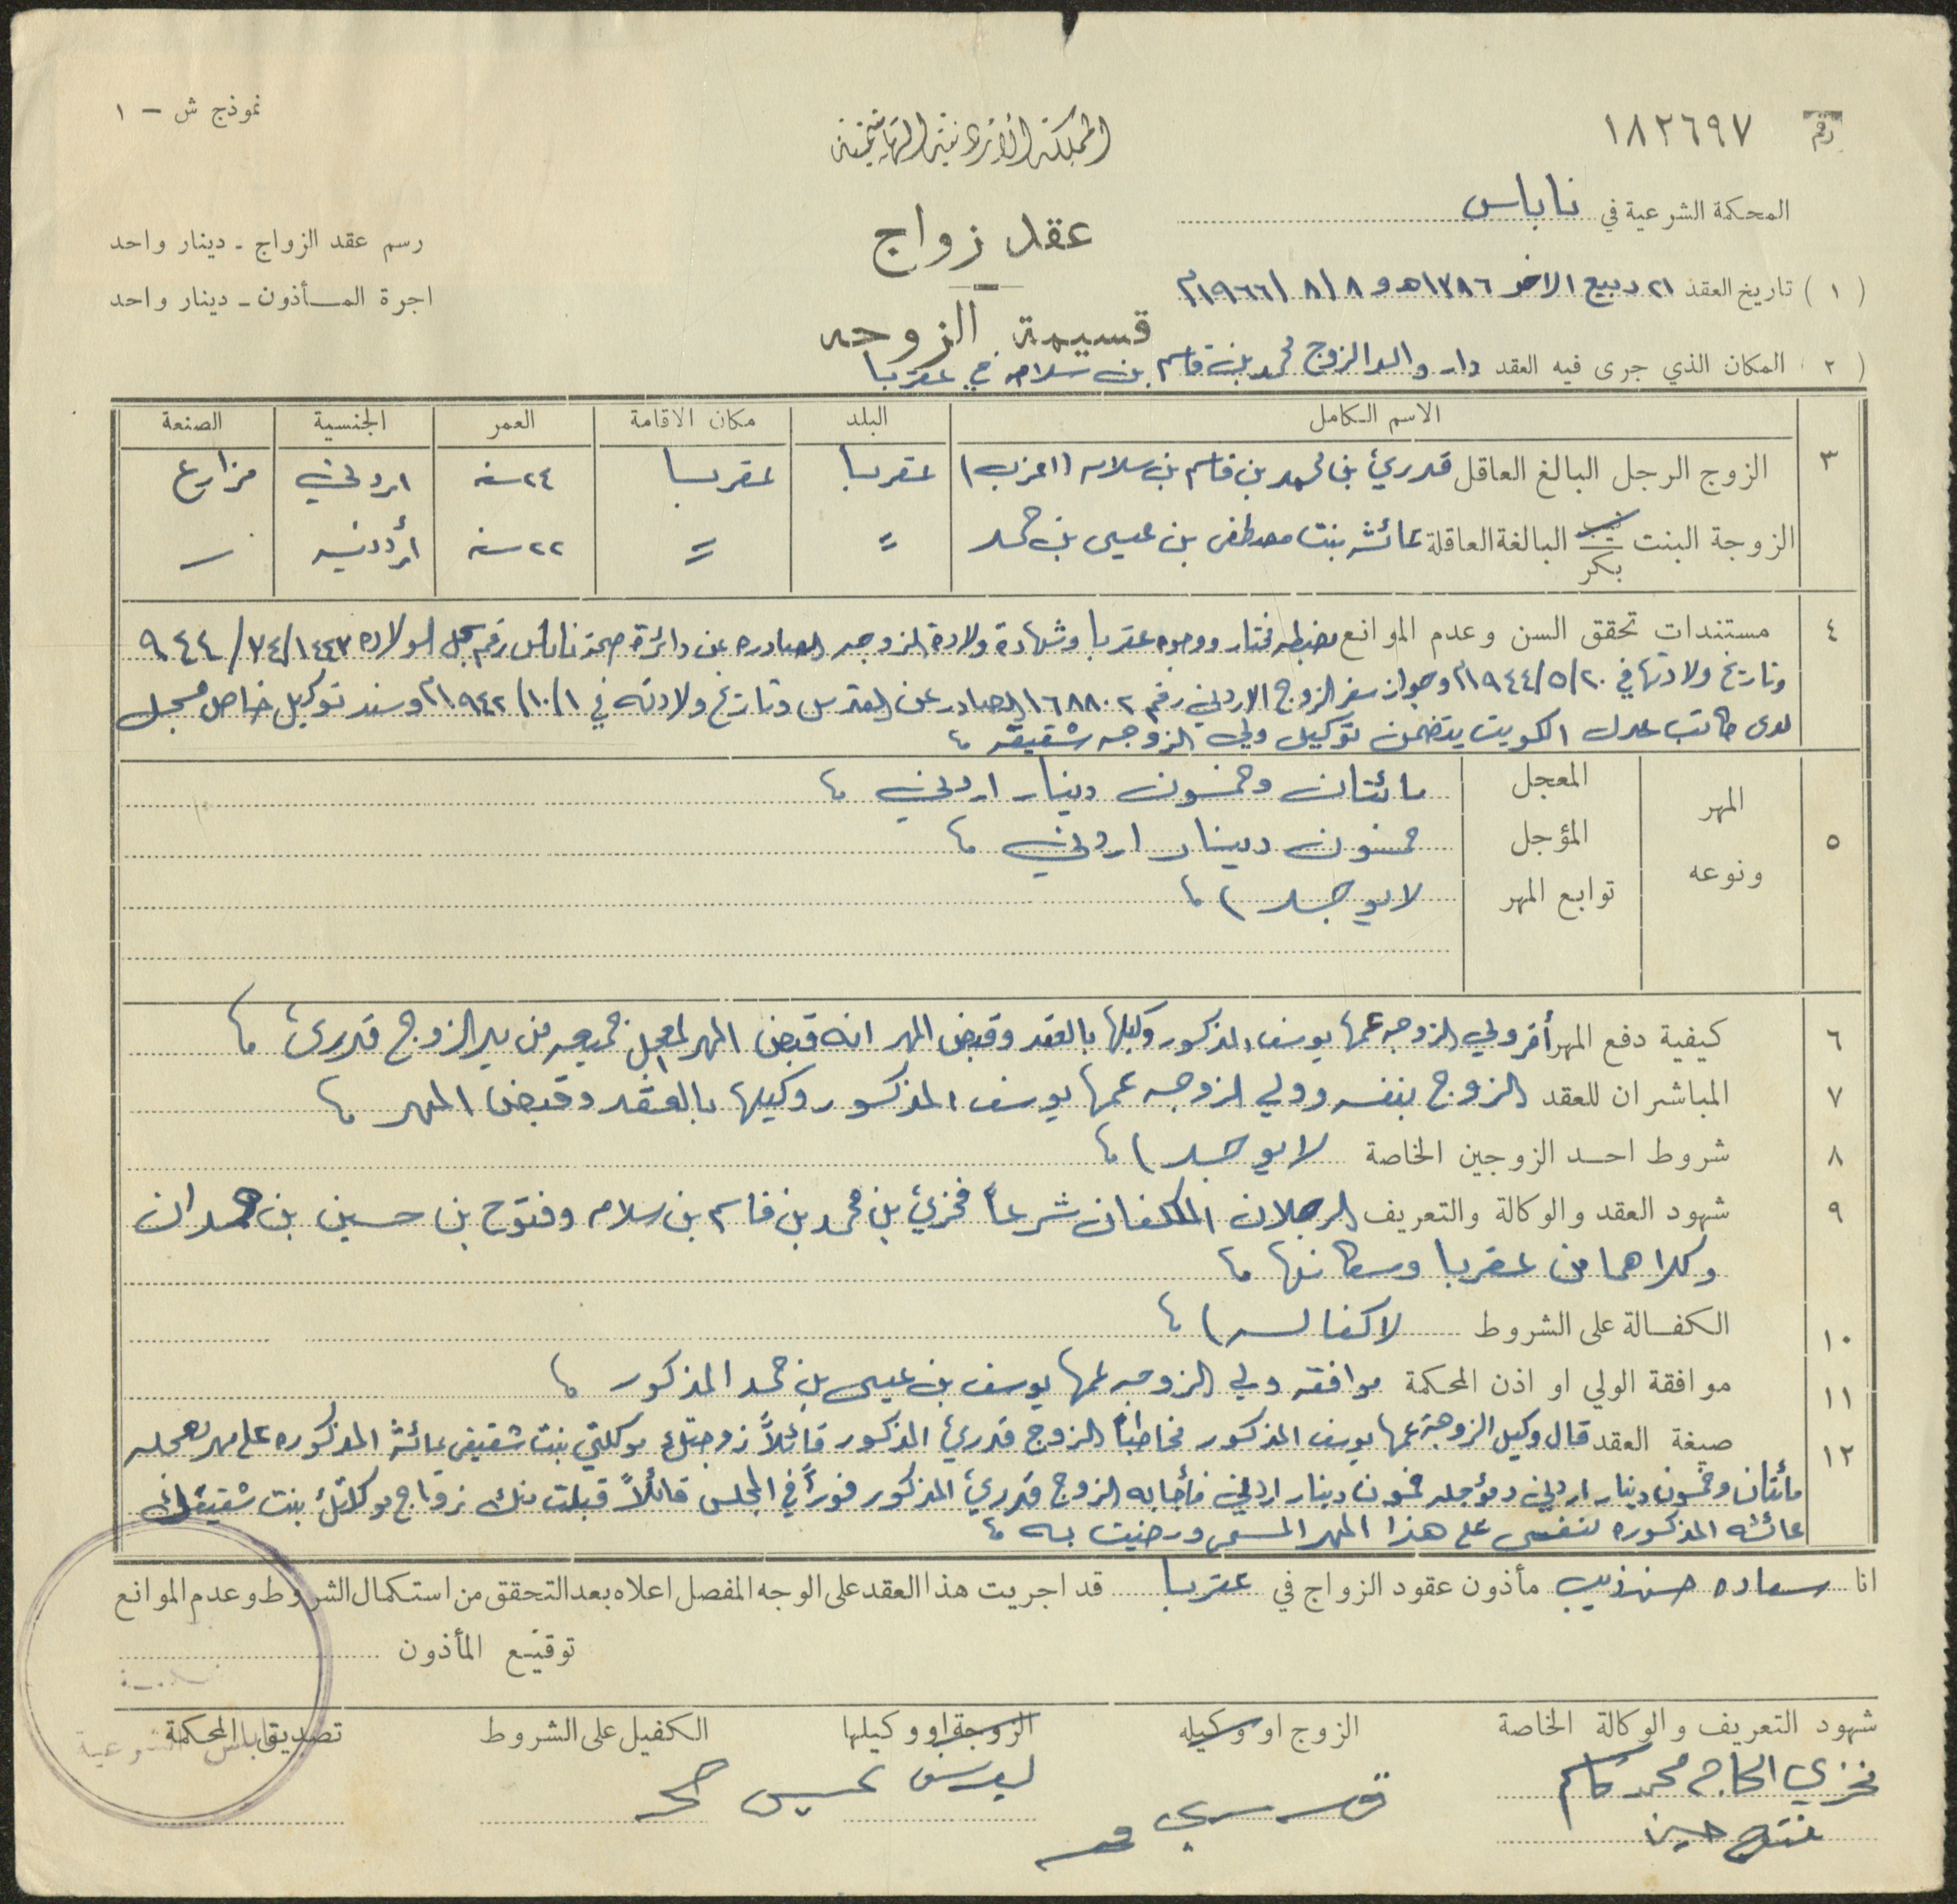 نموذج ش – ١
رقم ١٨٢٦٩٧
المملكة الأردنية الهاشمية
المحكمة الشرعية في نابلس
عقد زواج
رسم عقد الزواج ـ دينار واحد
(١) تاريخ العقد ٢١ ربيع الاخر ١٣٨٦هـ و ٨/٨/١٩٦٦م
اجرة المـأذون ـ دينار واحد
قسيمة الزوجه
(٢) المكان الذي جرى فيه العقد دار والد الزوج محمد بن قاسم بن سلامه في عقربا
الاسم الكامل البلد مكان الاقامة العمر الجنسية الصنعة
٣ الزوج الرجل البالغ العاقل قدري بن محمد بن قاسم بن سلامه (اعزب) عقربا عقربا ٢٤ سنه اردني مزارع
الزوجة البنت ثيب بكر البالغة العاقلة عائشه بنت مصطفى بن عيسى بن حمد = = ٢٢ سنه أردنيه –
٤ مستندات تحقق السن وعدم الموانع مضبطه مختار ووجوه عقربا وشهادة ولادة الزوجه الصادره عن دائرة صحة نابلس رقم سجل الولاده ٧٤/١٤٤٣/٩٤٤
وتاريخ ولادتها في ٢٠/٥/١٩٤٤م وجواز سفر الزوج الاردني رقم ١٦٨٨٠٢ الصادر عن القدس وتاريخ ولادته في ١/١٠/١٩٤٢م وسند توكيل خاص مسجل
لدى كاتب عدل الكويت يتضمن توكيل ولي الزوجه شقيقه
٥ المهر ونوعه المعجل مائتان وخمسون دينار اردني
المؤجل خمسون دينار اردني
توابع المهر لا يوجد)
٦ كيفية دفع المهر أقر ولي الزوجه عمها يوسف المذكور وكيلها بالعقد وقبض المهر انه قبض المهر المعجل جميعه من يد الزوج قدري
٧ المباشران للعقد الزوج بنفسه وولي الزوجه عمها يوسف المذكور وكيلها بالعقد وقبض المهر
٨ شروط احد الزوجين الخاصة لا يوجد)
٩ شهود العقد والوكالة والتعريف الرجلان المكلفان شرعاً فخري بن محمد بن قاسم بن سلامه وفتوح بن حسين بن حمدان
وكلاهما من عقربا وسكانها
١٠ الكفالة على الشروط لا كفاله)
١١ موافقة الولي او اذن المحكمة موافقه ولي الزوجه عمها يوسف بن عيسى بن حمد المذكور
١٢ صيغة العقد قال وكيل الزوجة عمها يوسف المذكور مخاطباً الزوج قدري المذكور قائلاً زوجتك موكلتي بنت شقيقي عائشه المذكوره على مهر معجله
مائتان وخمسون دينار اردني ومؤجله خمسون دينار اردني فأجابه الزوج قدري المذكور فوراً في المجلس قائلاً قبلت منك زواج موكلتك بنت شقيقك
عائشه المذكوره لنفسي على هذا المهر المسمى ورضيت به
انا سعاده حسن ذيب مأذون عقود الزواج في عقربا قد اجريت هذا العقد على الوجه المفصل اعلاه بعد التحقق من استكمال الشروط وعدم الموانع
توقيع المأذون
شهود التعريف والوكالة الخاصة الزوج او وكيله الزوجة او وكيلها الكفيل على الشروط تصديق المحكمة
فخري الحاج محمد قاسم قدري محمد يوسف عيسى حمد
فتوح حسين
نابلس الشرعية